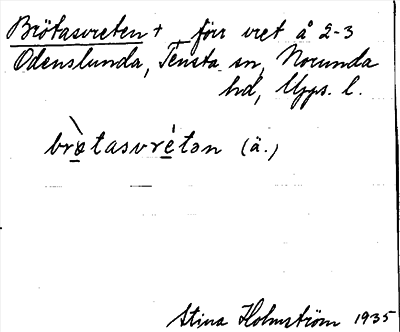 Brötasvreten + förr vret å 2-3
Odenslunda, Tensta sn, Norunda
hd, Upps. l.
brø̀tasvréton (ä.)
Stina Holmström 1935